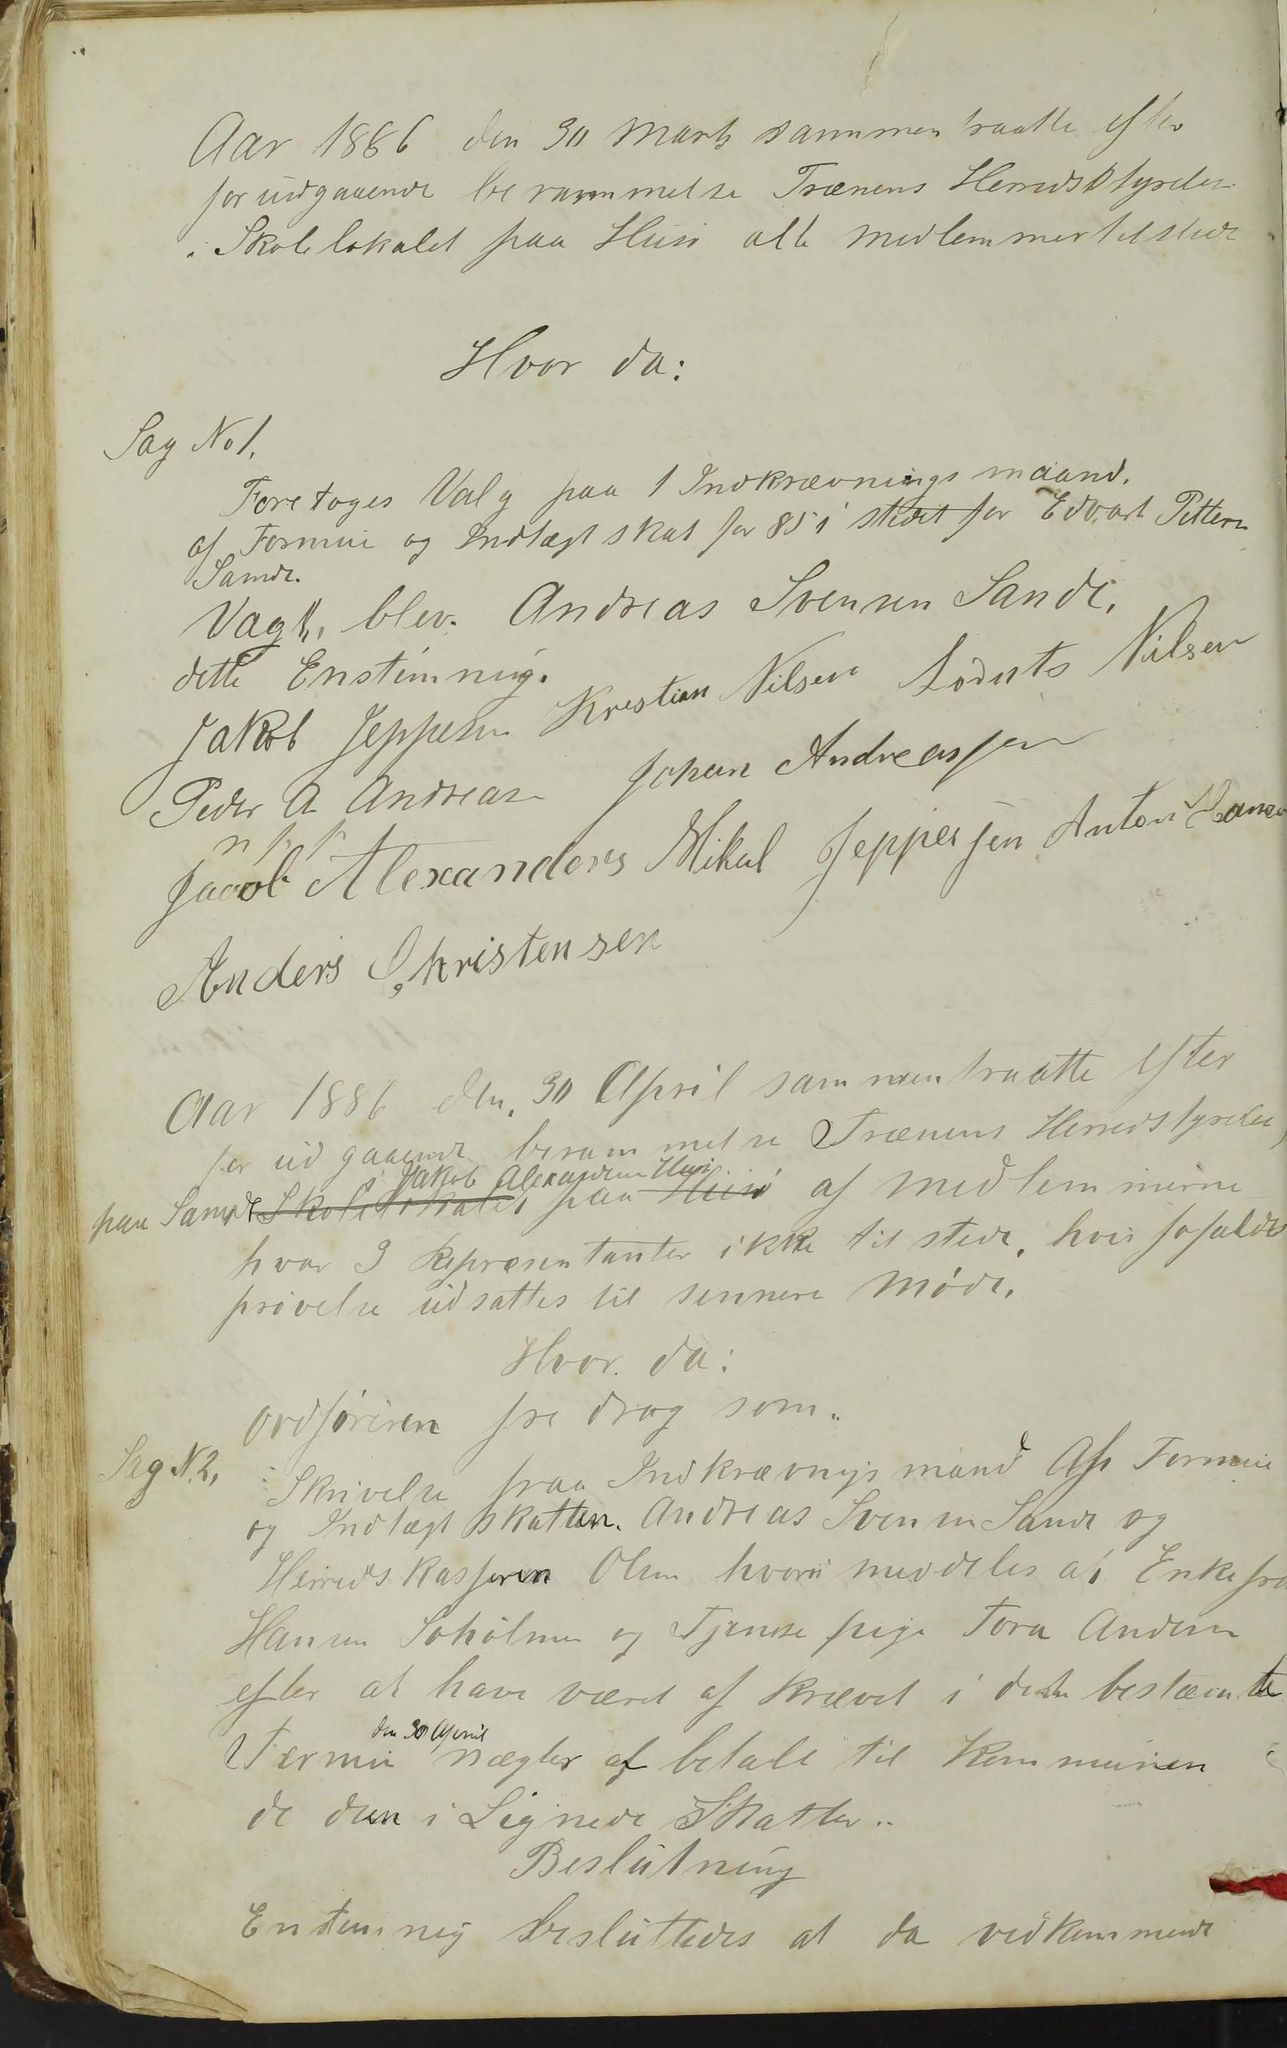 Aar 1886 den 30 Marts sammentraatte efter
forudgaaende berammelse Trænens Herredsstyrelse
i Skolelokalet paa Husø alle medlemmer tilstede
Hvor da:
Sag No 1.
Foretoges Valg paa 1 Indkrævnings maand.
af Formue og Indtægt skat for 85 i stedet for Edvart Petters
Sande.
Valgt, blev. Andreas Svensen Sande.
dette Enstimmig.
Jakob Jeppesen Kristian Nilsen Nilsen
Peder A Andreasen Johan Andreassen
m p p
Jacob Alexanders Mikal Jeppesen Anton Hansen
Anders Christensen
Aar 1886 den. 30 April sammentraatte efter
for ud gaaende berammelse Trænens Herredstyrelse,
Jakob Alexandersen Husø
paa Sande Skolelokalet paa Husø af medlemmerne
hvor 3 Repræsentanter ikke til stede, hvis fofalds
prøvelse udsattes til sennere Møde.
Hvor. da:
ordføreren fre drog som.
Sag N. 2,
Skrivelse fraa Indkrævnigs mand Afs Formue
og Indtægt skatten. Andreas Svensen Sande og
Herreds kasseren Olsen hvori meddeles at Enkefru
Hansen Soholmen og Tjeneste pige Tora Andersen
efter at have været af krævet i dette bestæmte
den 30 April
Termin nægter at betale til Kommunen
de dem i Lignede Skatter..
Beslutning
Enstemmig besluttedes at da vedkommende